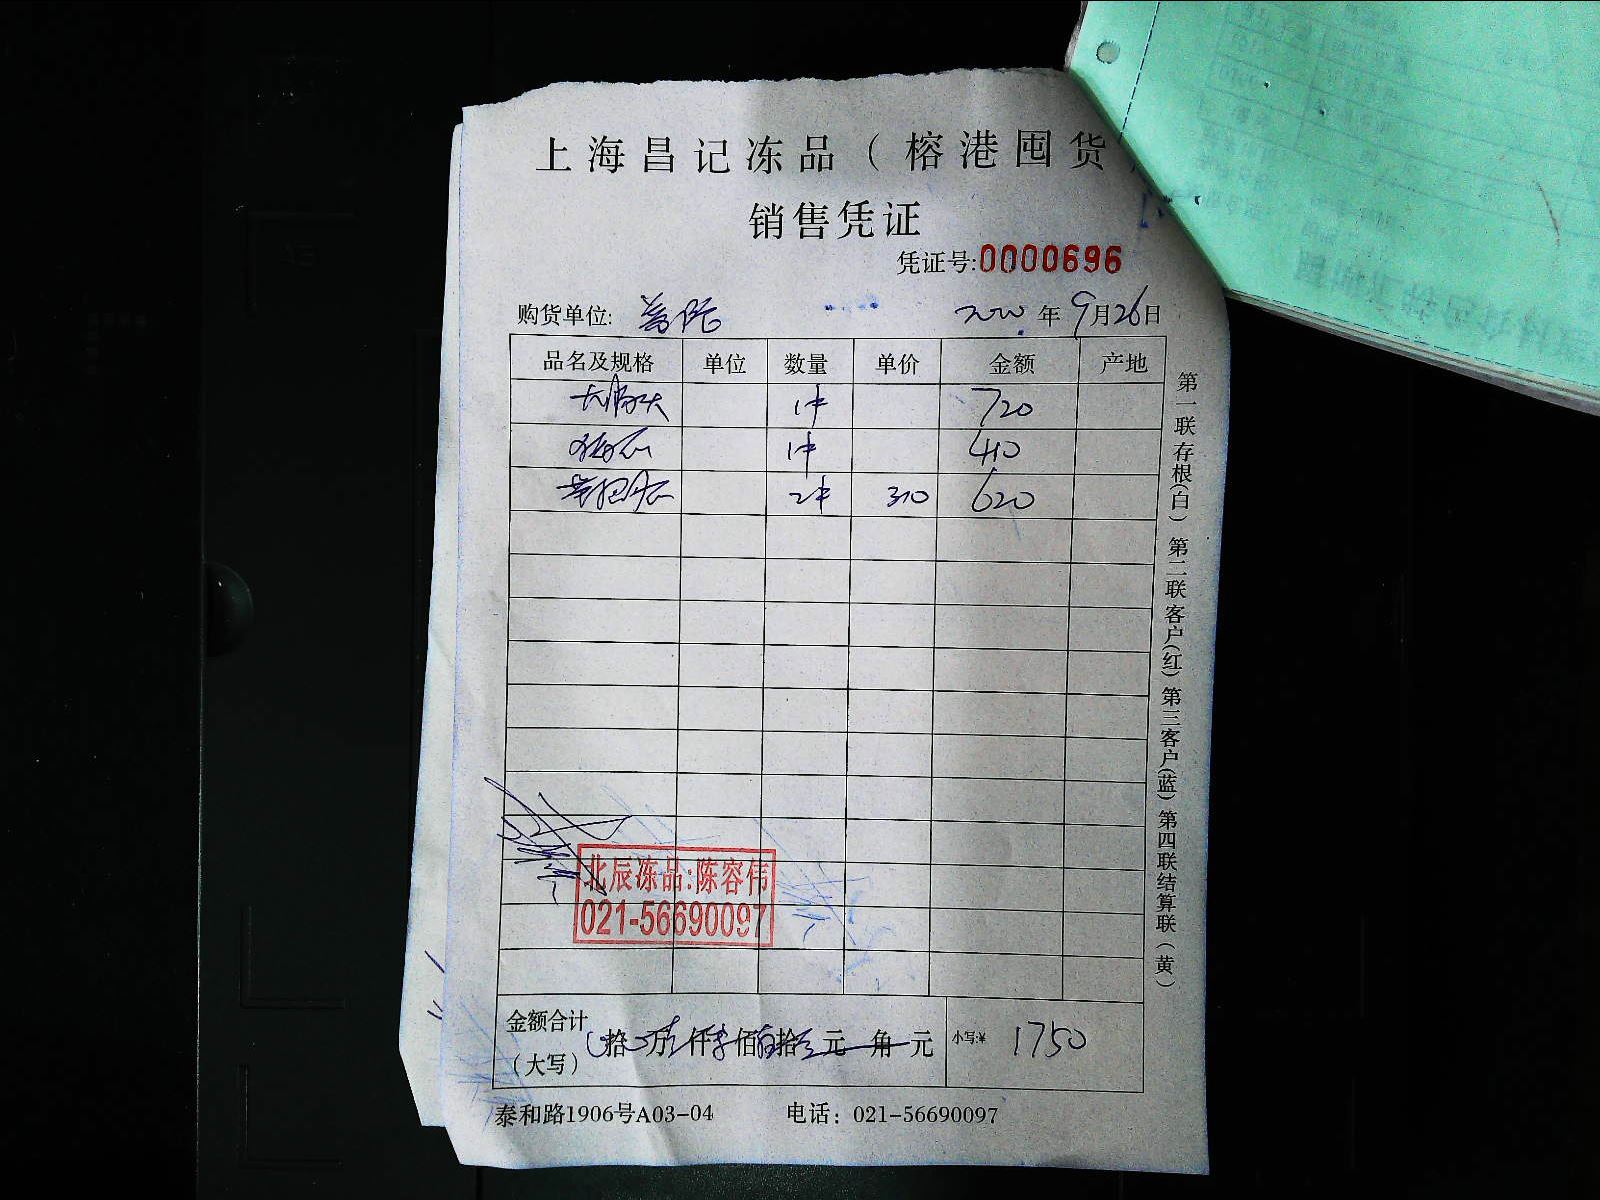 上海昌记冻品（榕港囤货
销售凭证
凭证号:0000696
购货单位: 年9月26日
品名及规格 单位 数量 单价 金额 产地
1件 720
1件 410
2件 310 620
第一联存根(白) 第二联客户(红) 第三客户(蓝) 第四联结算联(黄)
北辰冻品:陈容伟
021-56690097
金额合计（大写） 拾 万 仟 佰 拾 元 角 元 小写:¥ 1750
泰和路1906号A03-04 电话：021-56690097